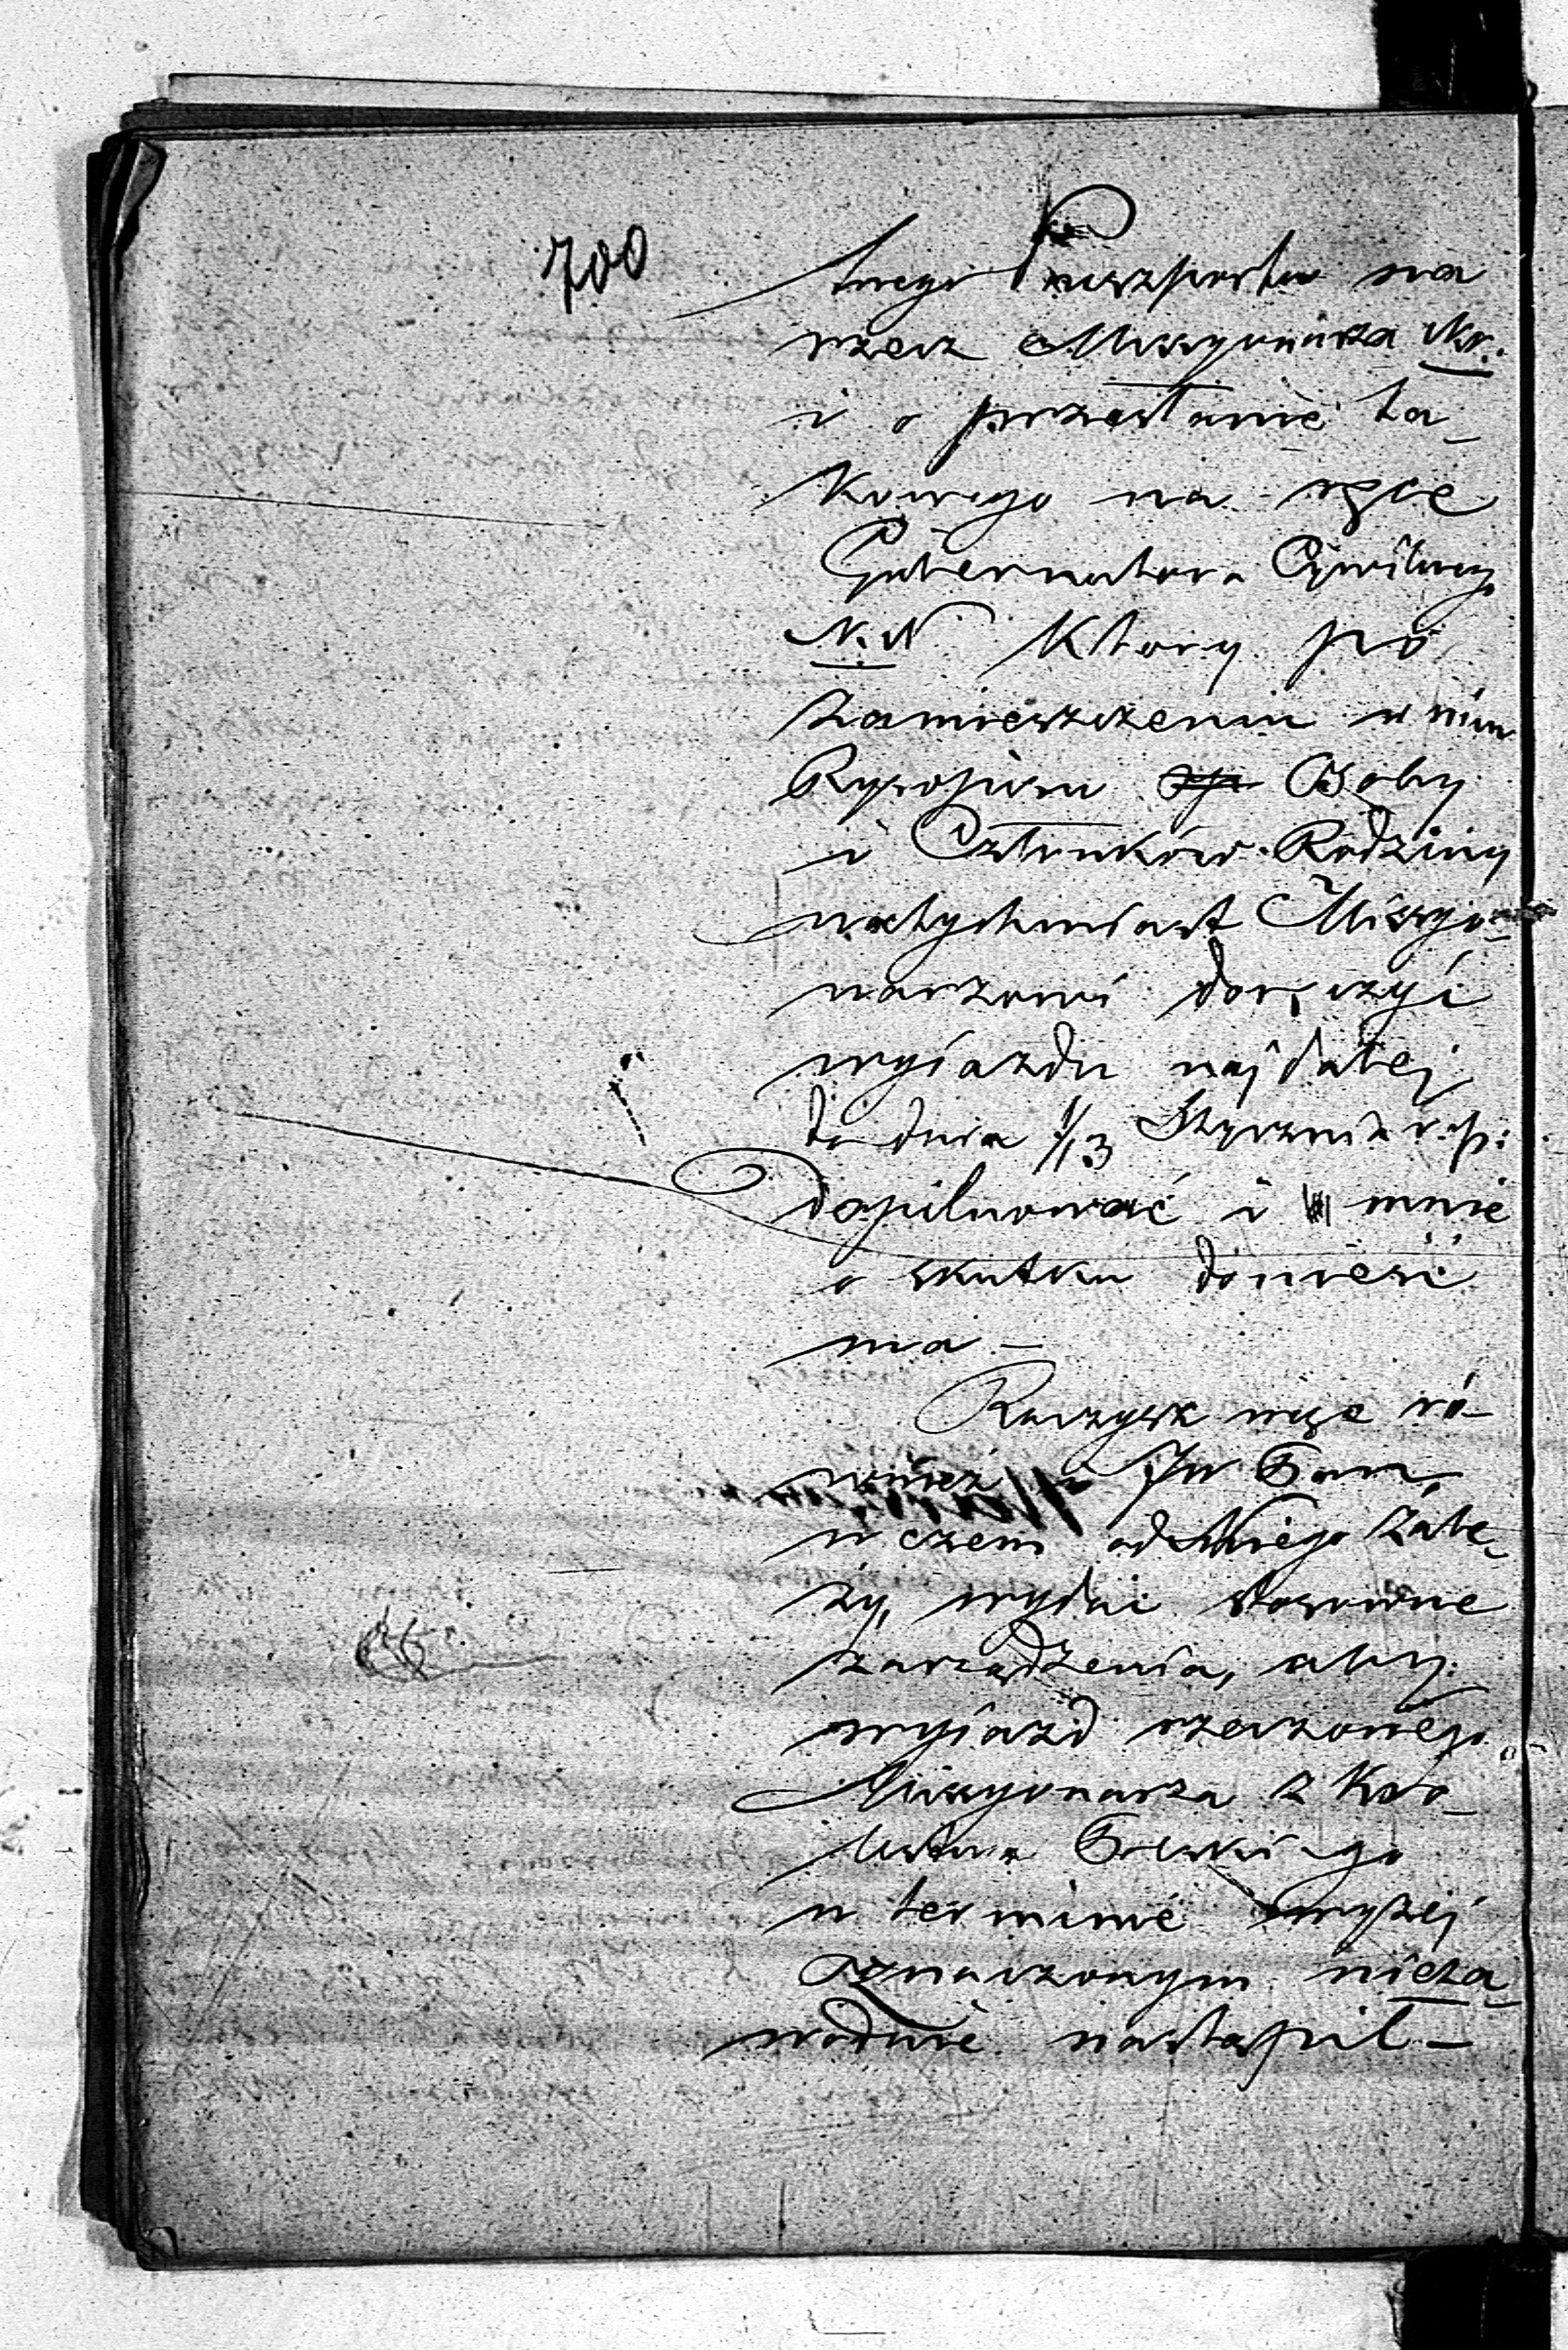 700
tnego Paszportu na
rzecz Missyonarza Nr.
i o przesłanie ta_
kowego na ręce
Gubernatora Cywilnego
N. N Ktory po
zamieszczeniu w nim
Rysopisu Osoby
i Członków Rodziny
natychmiast Missyo_
narzowi doręczyć
wyiazdu najdalej
do dnia 1/13 Stycznia r. p:
dopilnować i mnie
o skutku donieść
ma –
Raczysz więc ró_
wnież JW Pan
w czem od Niego zale_
ży, wydać stosowne
zarządzenia, aby
wyiazd rzeczonego
Missyonarza z Kró_
lestwa Polskiego
w terminie wyżej
oznaczonym nieza_
wodnie nastąpił –